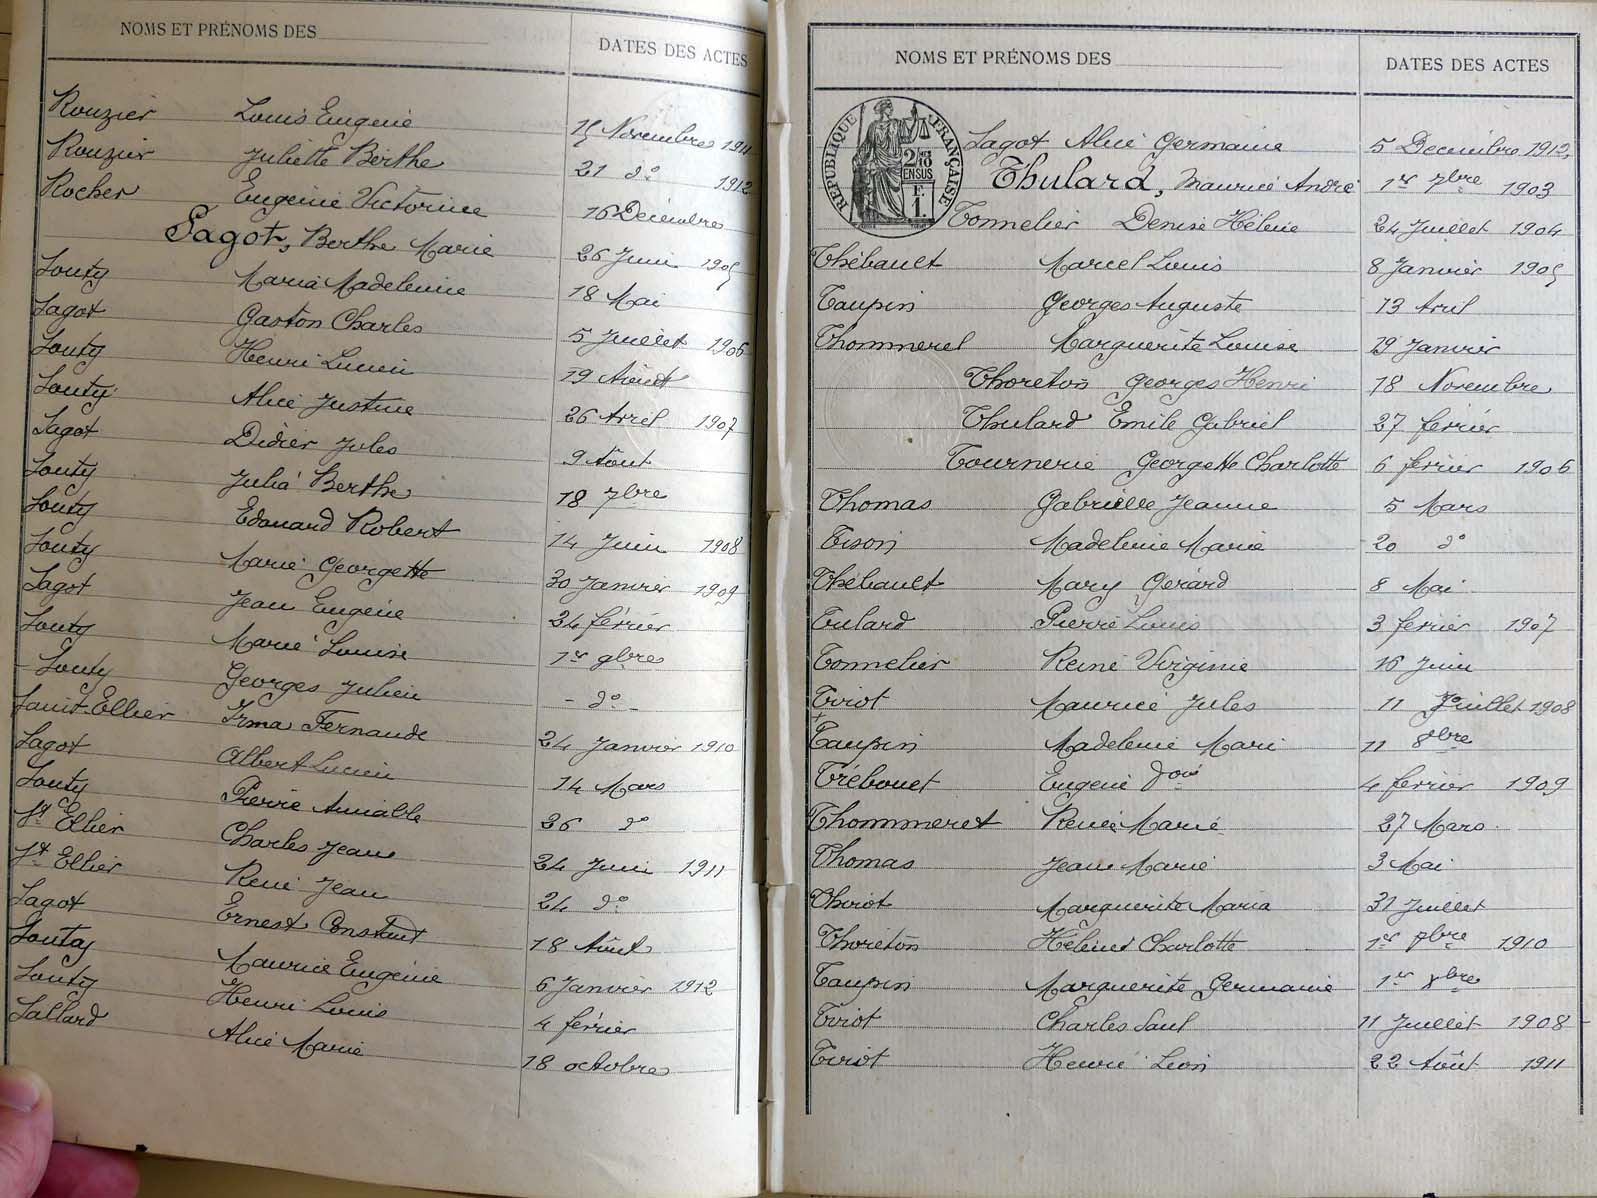 NOMS ET PRÉNOMS DES
DATES DES ACTES
Rouzier Louis Eugène 15 Novembre 1911
Rouzier Juliette Berthe 21 do 1912
Rocher Eugénie Victorine 16 Décembre
Sagot, Berthe Marie 26 Juin 1905
Souty Maria Madeleine 18 Mai
Sagot Gaston Charles 5 Juillet 1906
Souty Henri Lucien 19 Août
Souty Alice Justine 26 Avril 1907
Sagot Didier Jules 9 Août
Souty Julia Berthe 18 7bre
Souty Edouard Robert 14 Juin 1908
Souty Marie Georgette 30 Janvier 1909
Sagot Jean Eugène 24 février
Souty Marie Louise 1er 9bres
Souty Georges Julien - do -
Saint-Ellier Irma Fernande 24 Janvier 1910
Sagot Albert Lucien 14 Mars
Souty Pierre Aimable 26 do
St Ellier Charles Jean 24 Juin 1911
St Ellier René Jean 24 do
Sagot Ernest Constant 18 Août
Souty Maurice Eugène 6 Janvier 1912
Souty Henri Louis 4 février
Sallard Alice Marie 18 octobre
NOMS ET PRÉNOMS DES
DATES DES ACTES
RÉPUBLIQUE FRANÇAISE
2/10 EN SUS
F. 1.
Sagot Alice Germaine 5 Décembre 1912
Thulard, Maurice André 1er 7bre 1903
Tonnelier Denise Hélène 24 Juillet 1904
Thébault Marcel Louis 8 Janvier 1905
Taupin Georges Auguste 13 Avril
Thommerel Marguerite Louise 19 Janvier
Thoreton Georges Henri 18 Novembre
Thulard Emile Gabriel 27 février
Tournerie Georgette Charlotte 6 février 1906
Thomas Gabrielle Jeanne 5 Mars
Tison Madeleine Marie 20 do
Thébault Mary Gérard 8 Mai
Tulard Pierre Louis 3 février 1907
Tonnelier Reiné Virginie 16 Juin
Tiriot Maurice Jules 11 Juillet 1908
Taupin Madeleine Marie 11 8bre
Trébouet Eugène 4 février 1909
Thommeret Renée Marie 27 Mars
Thomas Jean Marie 3 Mai
Thiriot Marguerite Maria 31 Juillet
Thoreton Hélène Charlotte 1er 7bre 1910
Taupin Marguerite Germaine 1er 8bre
Tiriot Charles Saul 11 Juillet 1908 -
Tiriot Henri Léon 22 Août 1911